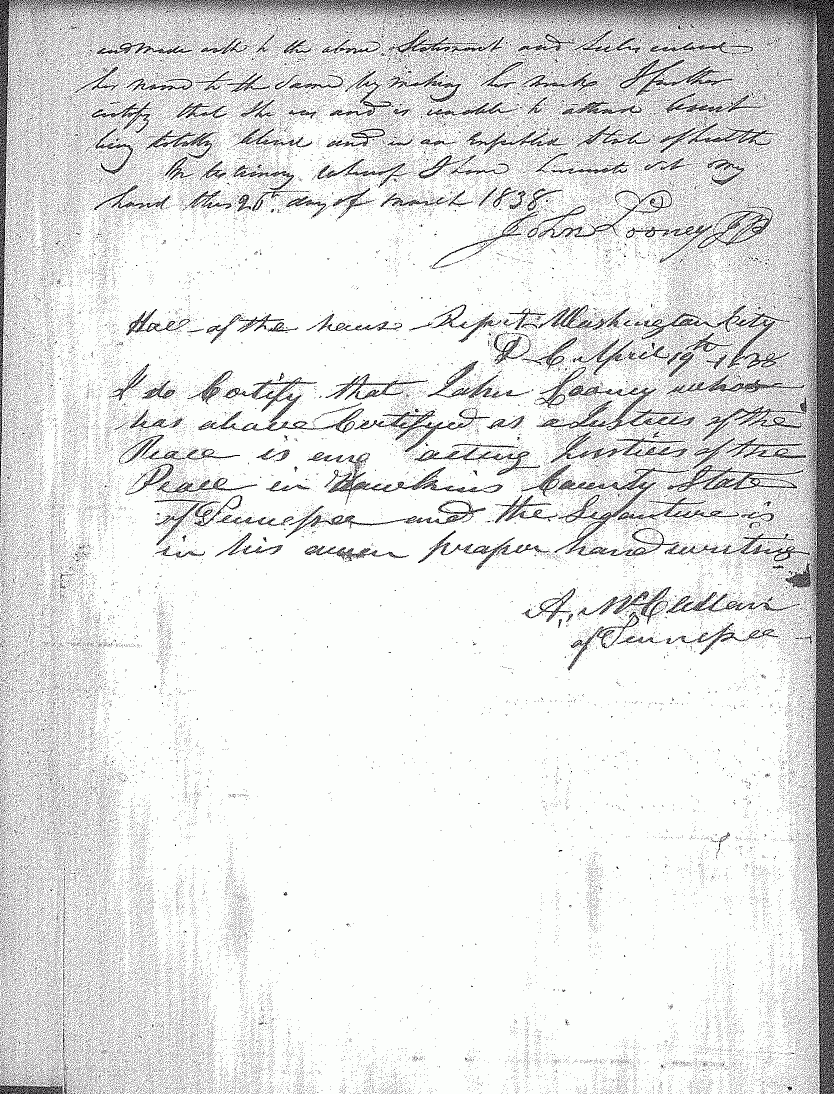 and made oath to the above Statement and Subscribed
her name to the same by making her mark I further
certify that she was and is unable to attend Court
being totally blind and in an Enfeebled State of health
In testimony whereof I have hereunto set my
hand this 20th day of March 1838.
John Looney JP
Hall of the house Rept. Washington City
D. C. April 19th 1838
I do Certify that John Looney whose
has above Certified as a Justices of the
Peace is and acting Justices of the
Peace in Hawkins County State
of Tennessee and the Signture is
in his own proper hand writing
A. McClellan
of Tennessee